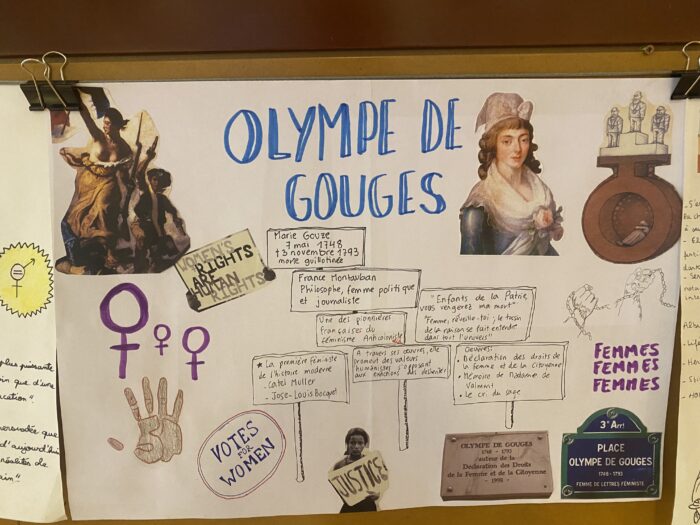 OLYMPE DE
GOUGES
WOMEN'S
RIGHTS
ARE
HUMAN
RIGHTS
Marie Gouze
7 mai 1748
† 3 novembre 1793
morte guillotinée
France Montauban
Philosophe, femme politique
et journaliste
"Enfants de la Patrie,
vous vengerez ma mort"
"Femme, réveille-toi ; le tocsin
de la raison se fait entendre
dans tout l'univers"
Une des pionnières
françaises du
féminisme
"La première féministe
de l'histoire moderne"
- Catel Muller
- José-Louis Bocquet
A travers ses œuvres, elle
promeut des valeurs
humanistes s'opposant
aux
Œuvres:
Déclaration des droits de
la femme et de la citoyenne
Mémoire de Madame de
Valmont
Le cri du sage
FEMMES
FEMMES
FEMMES
VOTES
FOR
WOMEN
JUSTICE
OLYMPE DE GOUGES
1748 - 1793
auteur de la
Déclaration des Droits
de la Femme et de la Citoyenne
3e Arrt
PLACE
OLYMPE DE GOUGES
1748 - 1793
FEMME DE LETTRES FÉMINISTE
plus puissante
que d'une
d'aujourd'hui
réalités de